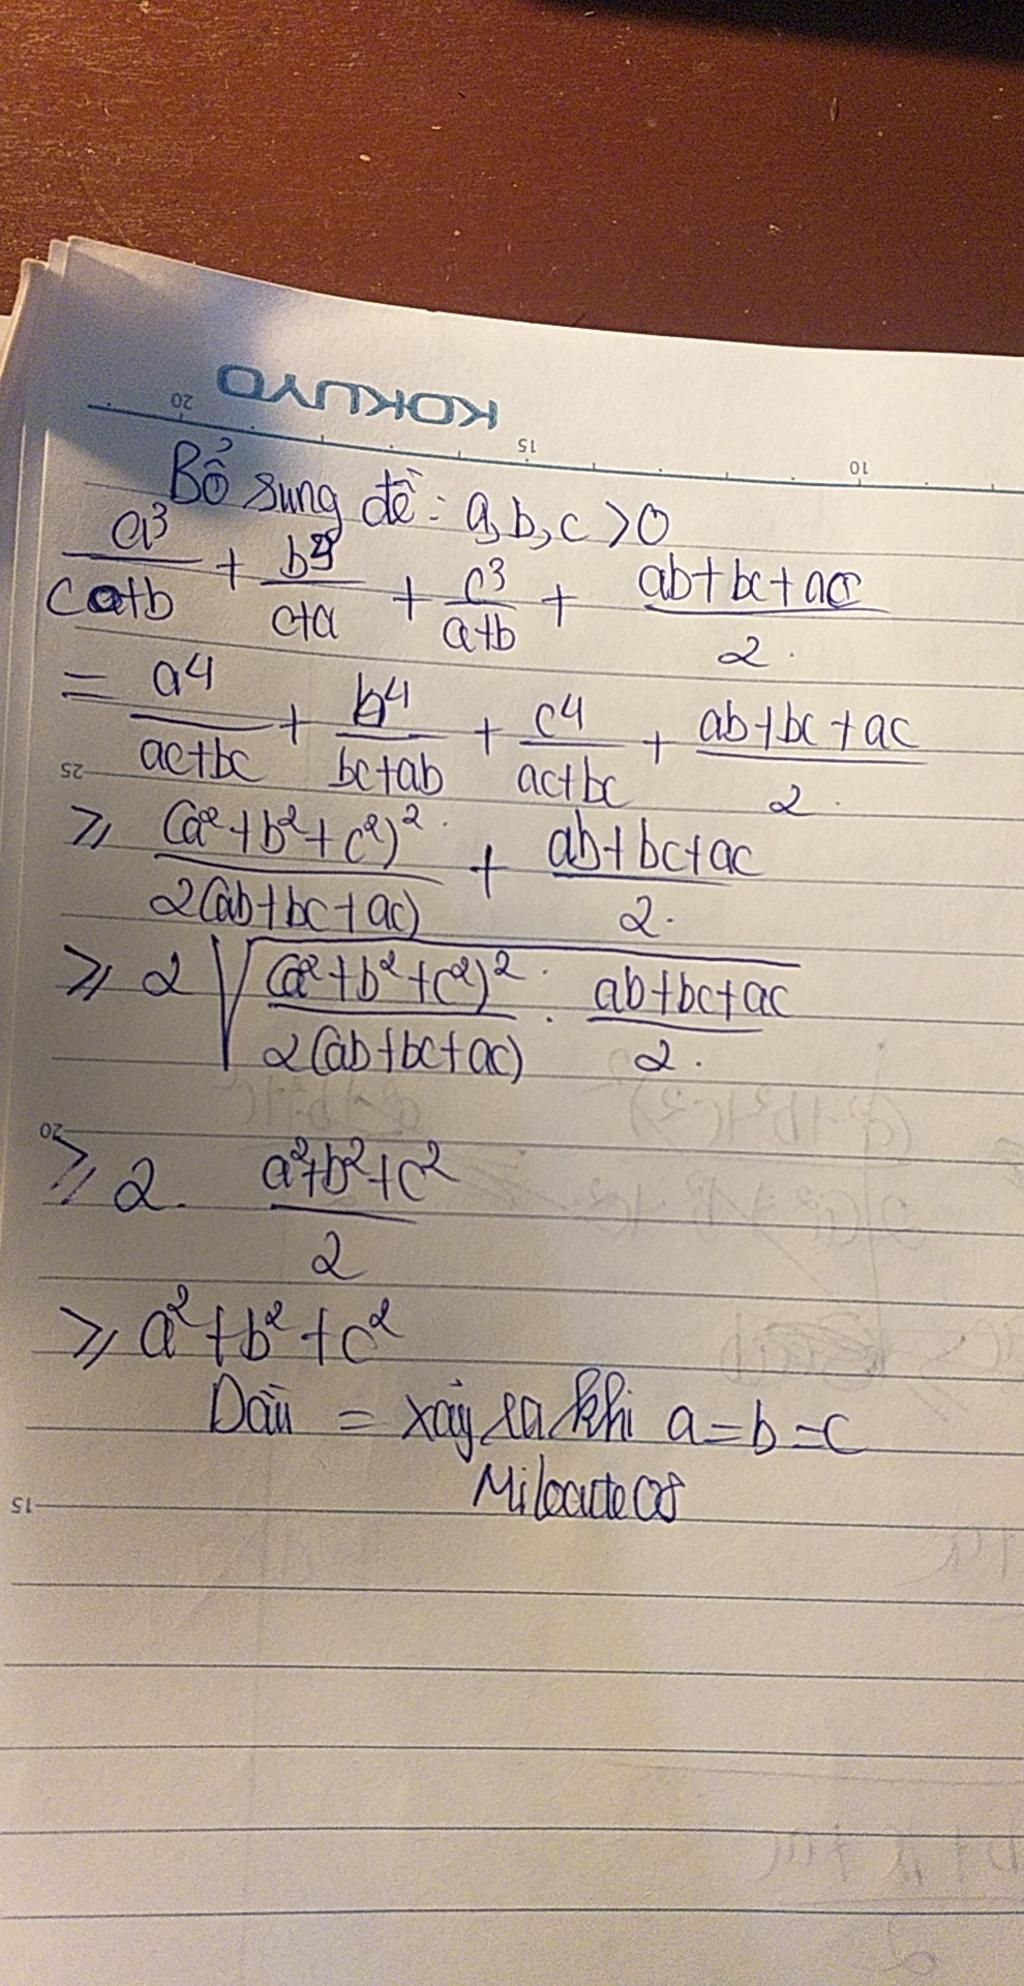 KOKUYO
20 15 10
Bổ sung đề: a,b,c >0
a³/(c+b) + b³/(c+a) + c³/(a+b) + (ab+bc+ac)/2.
= a⁴/(ac+bc) + b⁴/(bc+ab) + c⁴/(ac+bc) + (ab+bc+ac)/2.
25
⩾ (a²+b²+c²)²/(2(ab+bc+ac)) + (ab+bc+ac)/2.
⩾ 2√((a²+b²+c²)²/(2(ab+bc+ac)) . (ab+bc+ac)/2.)
20
⩾ 2. (a²+b²+c²)/2
⩾ a²+b²+c²
Dấu = xảy ra khi a=b=c
15